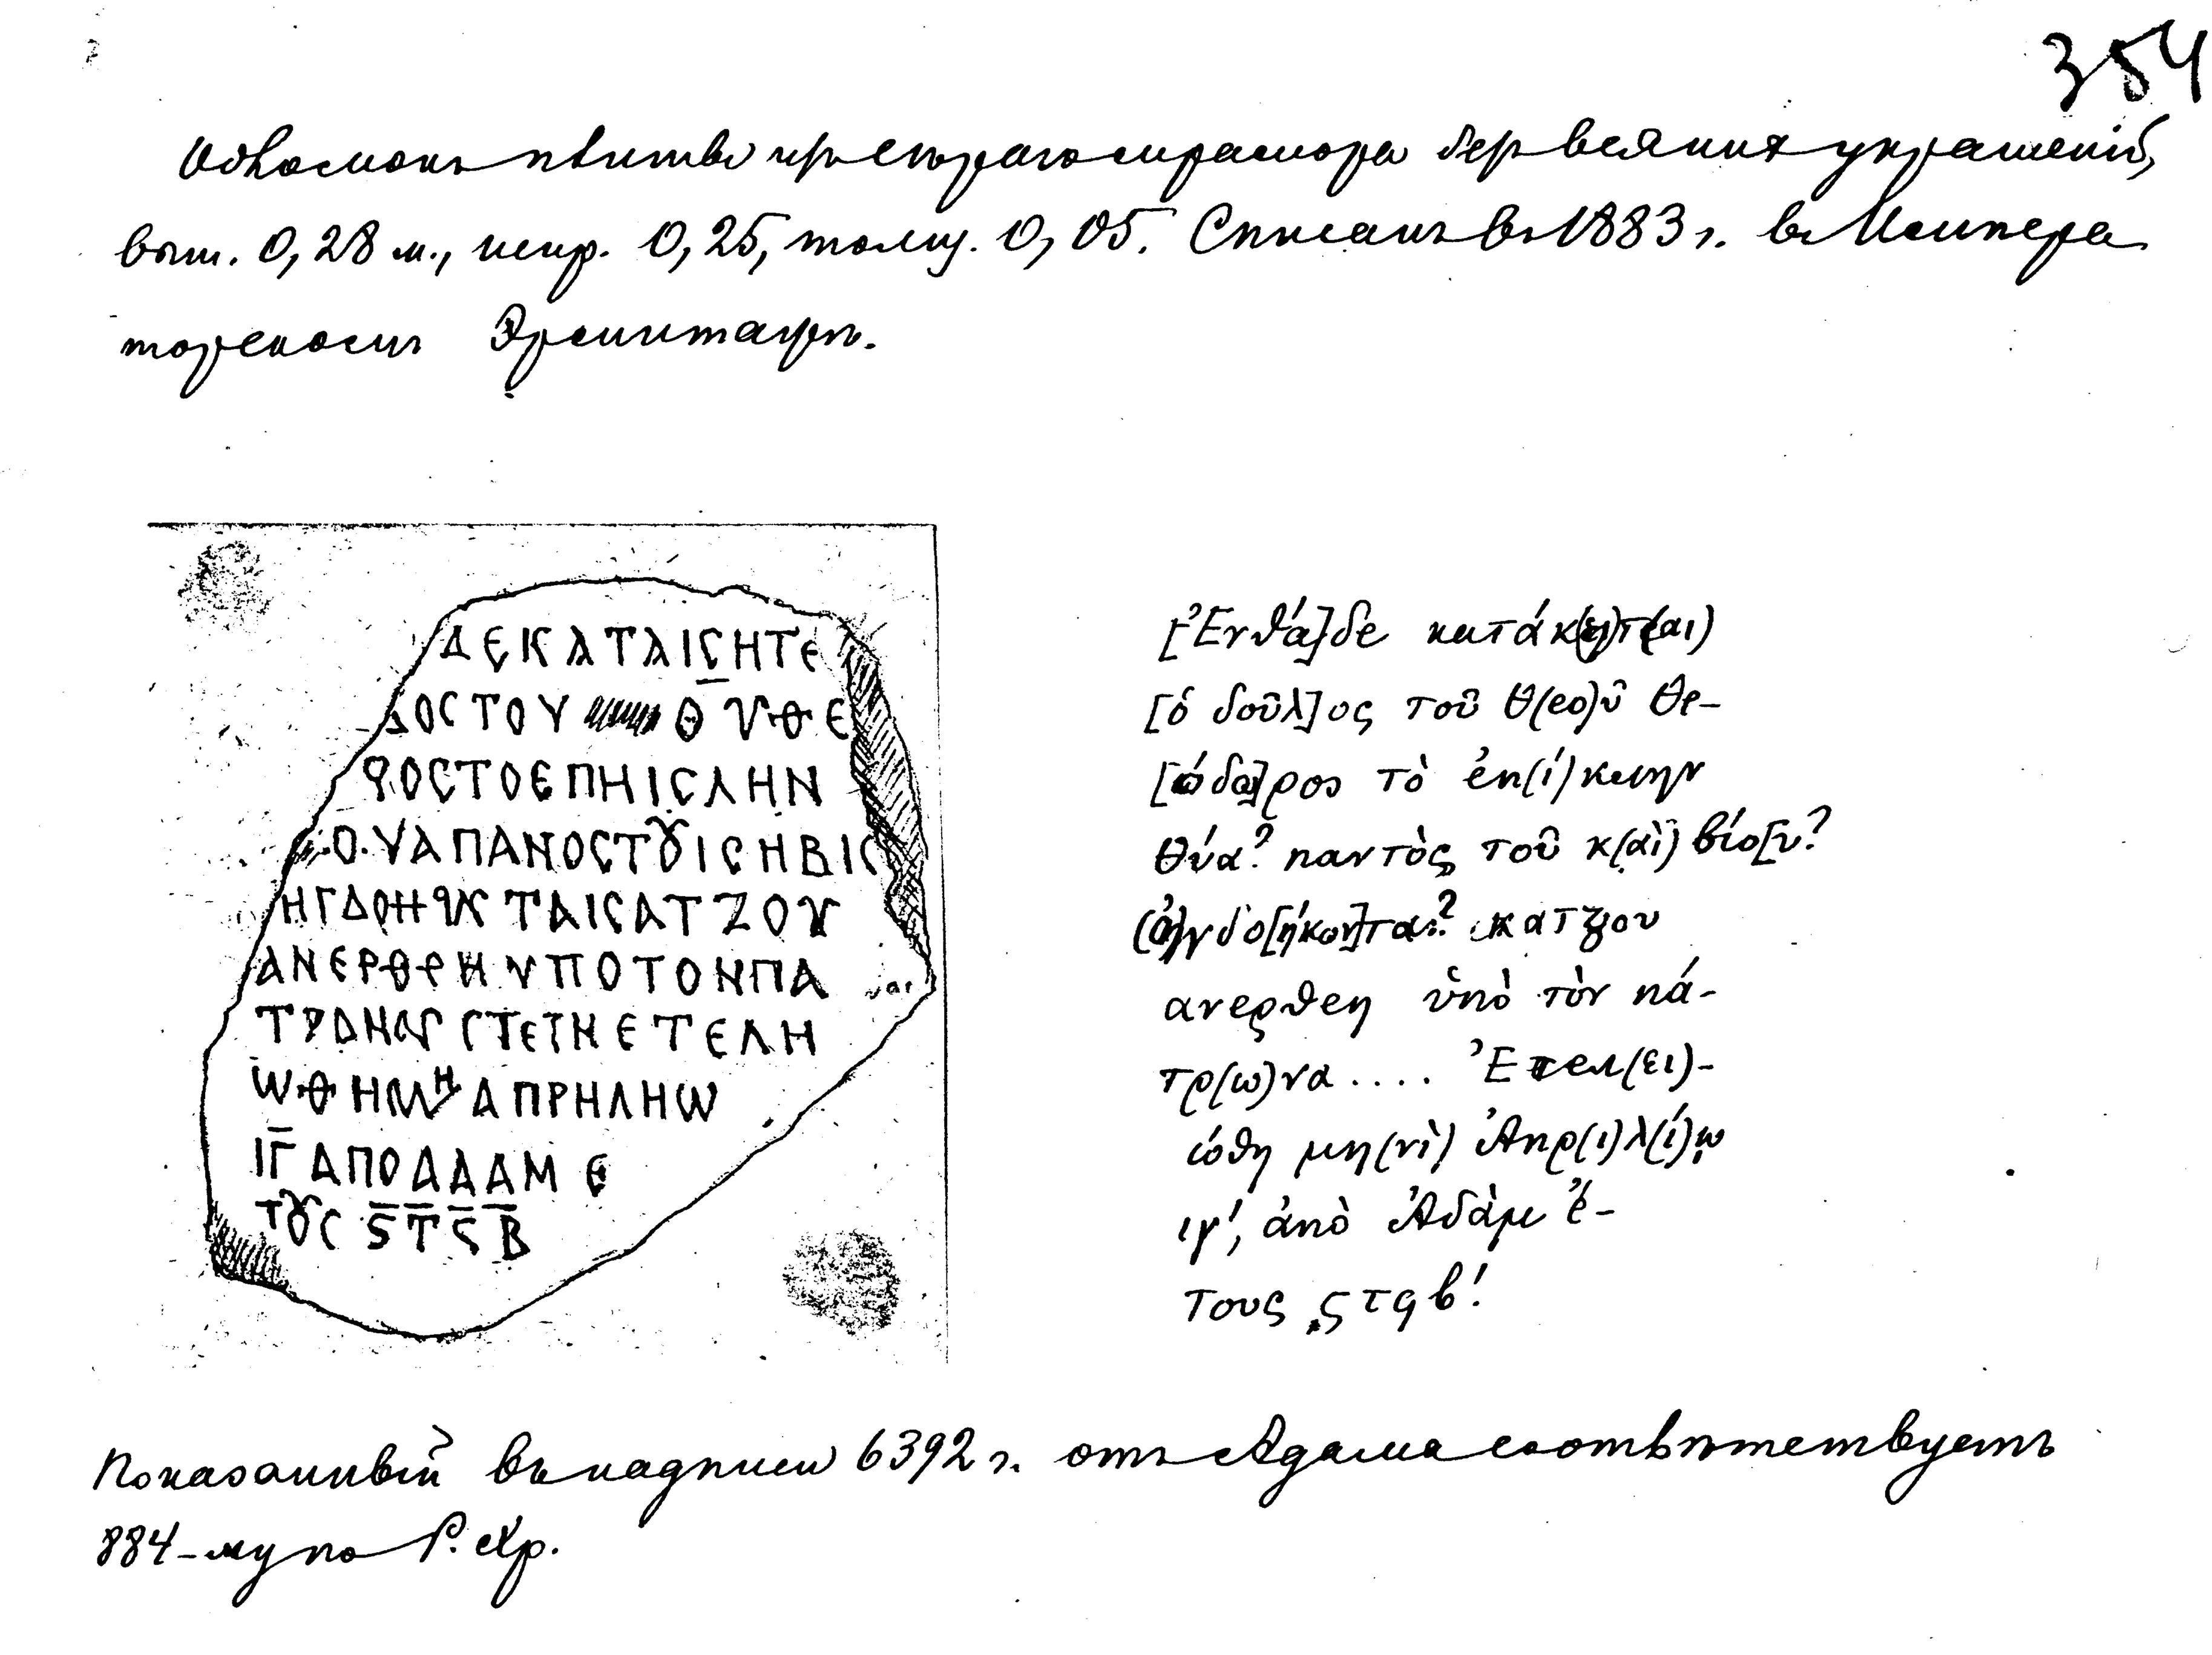 354
Обломокъ плиты изъ сѣраго мрамора безъ всякихъ украшеній,
выш. 0,28 м., шир. 0,25, толщ. 0,05. Списанъ въ 1883 г. въ Импера
торскомъ Эрмитажѣ.
ΔΕΚΑΤΑΙϚΗΤΕ
ΔΟϹΤΟΥ Θ Ύ ΘΕ
ΡΟϹΤΟΕΠΗΙϹΛΗΝ
Ο.ΥΑΠΑΝΟϹΤȢΙϹΗΒΙΟ
ΗΓΔΟΗ ΤΑΙϹΑΤΖΟΥ
ΑΝΕΡΘΡΗΥΠΟΤΟΝΠΑ
ΕΤΕΛΗ
ΩΘΗΜΗΑΠΡΗΛΗΩ
ΙΓΑΠΟΑΔΑΜ Ε
ΤȢϹ ϚΤϚΒ
[Ἐνθά]δε κατάκ(η)τ(αι)
[ὁ δοῦλ]ος τοῦ θ(εο)ῦ Θε-
[όδω]ρος τὸ ἐπ(ί)κλην
θύα? παντὸς τοῦ κ(αὶ) βίο[υ?
(ὀ)γδο[ήκον]τα? κατζου
ανερθεη ὑπὸ τὸν πά-
τρ(ω)να .... Ἐτελ(ει)-
ώθη μη(νὶ) Ἀπρ(ι)λ(ί)ῳ
ιγ', ἀπὸ Ἀδὰμ ἔ-
τους ͵ϛτϙβ'.
Показанный въ надписи 6392 г. отъ Адама соотвѣтствуетъ
884-му по Р. Хр.